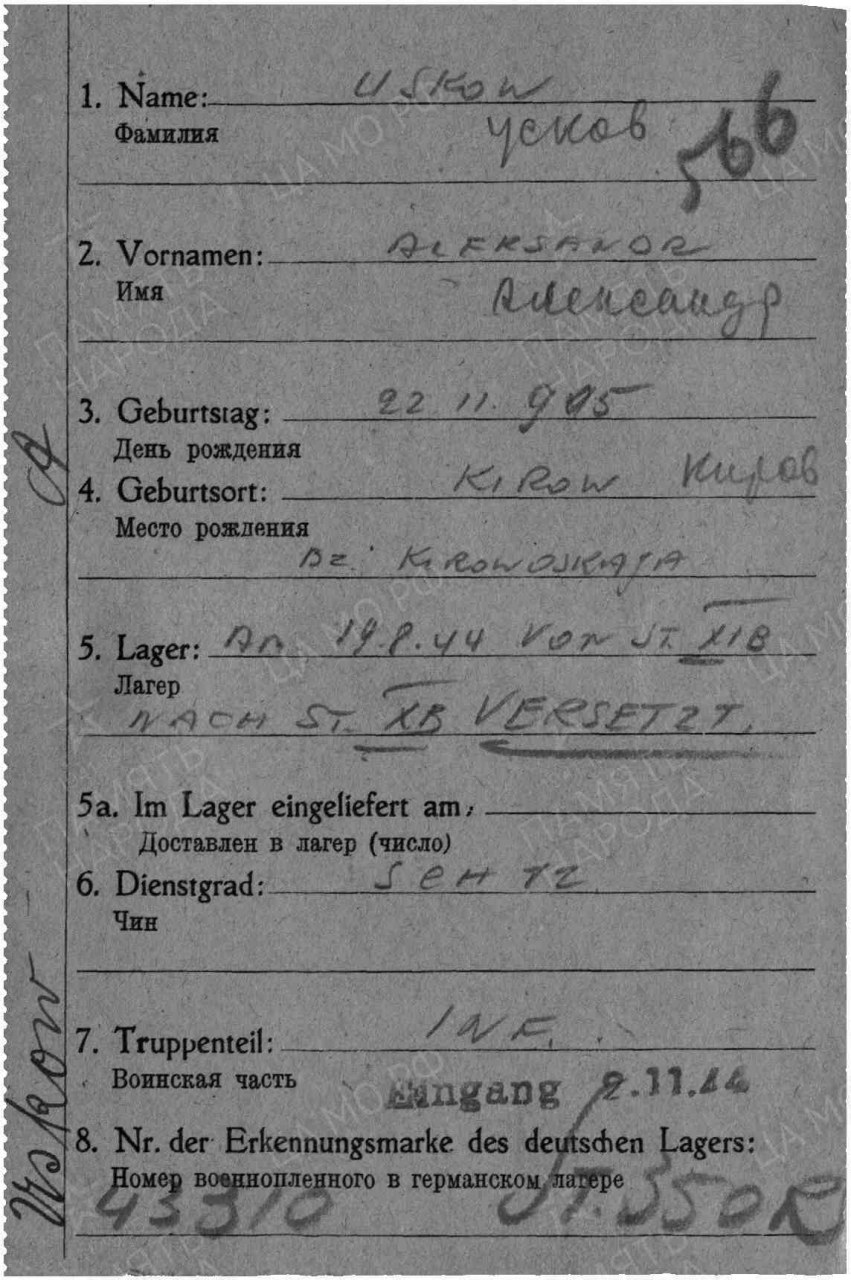 1. Name: USKOW
Фамилия Усков 566
2. Vornamen: ALEKSANDR
Имя Александр
3. Geburtstag: 22 11. 905
День рождения
4. Geburtsort: KIROW Киров
Место рождения
Bz. KIROWOSKAJA
5. Lager: AM 19.8.44 VON ST. XIB
Лагер
NACH ST. XB VERSETZT.
5a. Im Lager eingeliefert am:
Доставлен в лагер (число)
6. Dienstgrad: SCHTZ
Чин
7. Truppenteil: INF.
Воинская часть
Eingang 2.11.44
8. Nr. der Erkennungsmarke des deutschen Lagers:
Номер военнопленного в германском лагере
43310 ST. 350 R
Uskow A
ЦА МО РФ
ПАМЯТЬ
НАРОДА